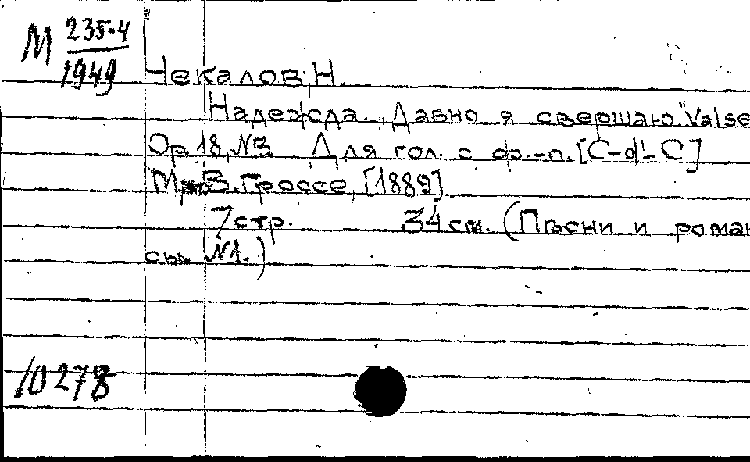 М 235-4
1949
Чекалов, Н.
Надежда. "Давно я свершаю". Valse
Op. 18, №3. Для гол. с ф.-п. [C-d'-C]
М., В. Гроссе, [1889]
7 стр. 34 см. (Пѣсни и роман
сы №1.)
10278